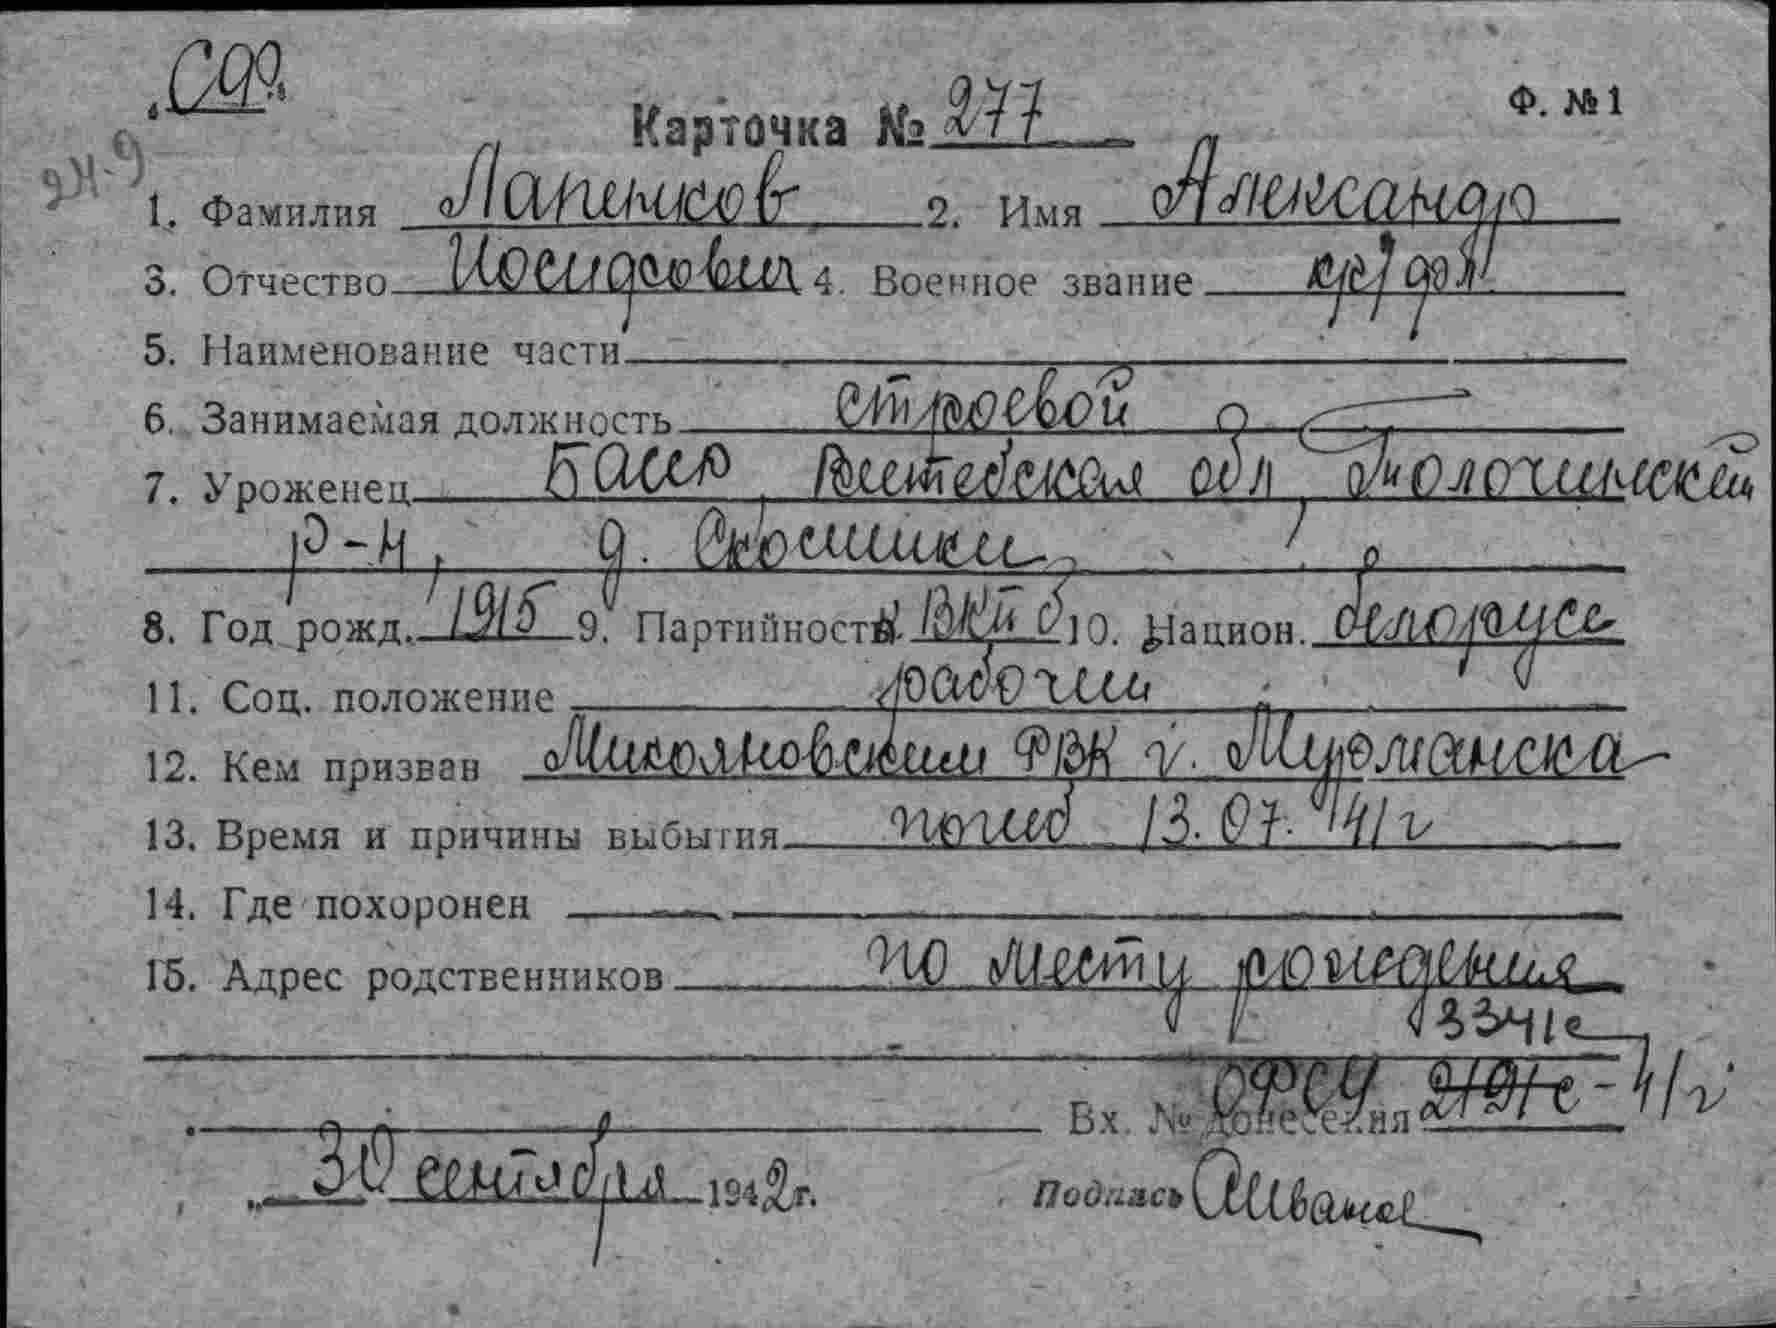 СФ.
Ф. №1
Карточка № 277
1. Фамилия Лапенков 2. Имя Александр
3. Отчество Иосифович 4. Военное звание кр/фл
5. Наименование части
6. Занимаемая должность строевой
7. Уроженец БССР, Витебская обл, Толочинский
р-н, д.
8. Год рожд. 1915 9. Партийность ВКП б 10. Национ. белорусс
11. Соц. положение рабочий
12. Кем призван Микояновским РВК г. Мурманска
13. Время и причины выбытия погиб 13.07.41 г
14. Где похоронен
15. Адрес родственников по месту рождения
3341с
Вх. № донесения 2191с - 41 г
"30 сентября 1942 г. Подпись